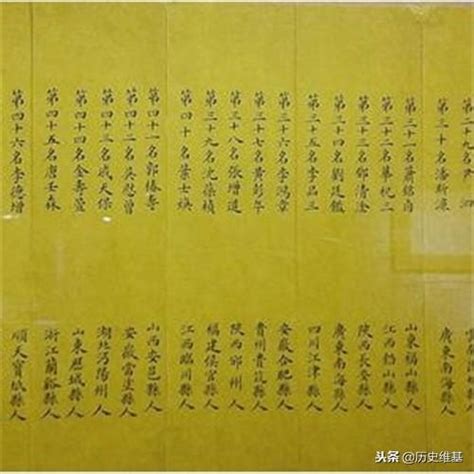 十九名
第三十名潘斯濂
第三十一名蕭銘卣
第三十二名
第三十三名鄧清淦
第三十四名劉廷鑑
第三十五名李品三
第三十六名李鴻章
第三十七名黃彭年
第三十八名張增道
第三十九名沈葆楨
第四十名葉士煥
第四十一名郭椿壽
第四十二名吳慰曾
第四十三名成天保
第四十四名金壽萱
第四十五名唐壬森
第四十六名李德增
廣東南海縣人
山東福山縣人
江西鉛山縣人
陝西長安縣人
廣東南海縣人
四川江津縣人
安徽合肥縣人
貴州貴筑縣人
陝西邠州人
福建侯官縣人
江西臨川縣人
山西安邑縣人
安徽當塗縣人
湖北沔陽州人
山東歷城縣人
浙江蘭谿縣人
順天寶坻縣人
头条 @历史维基